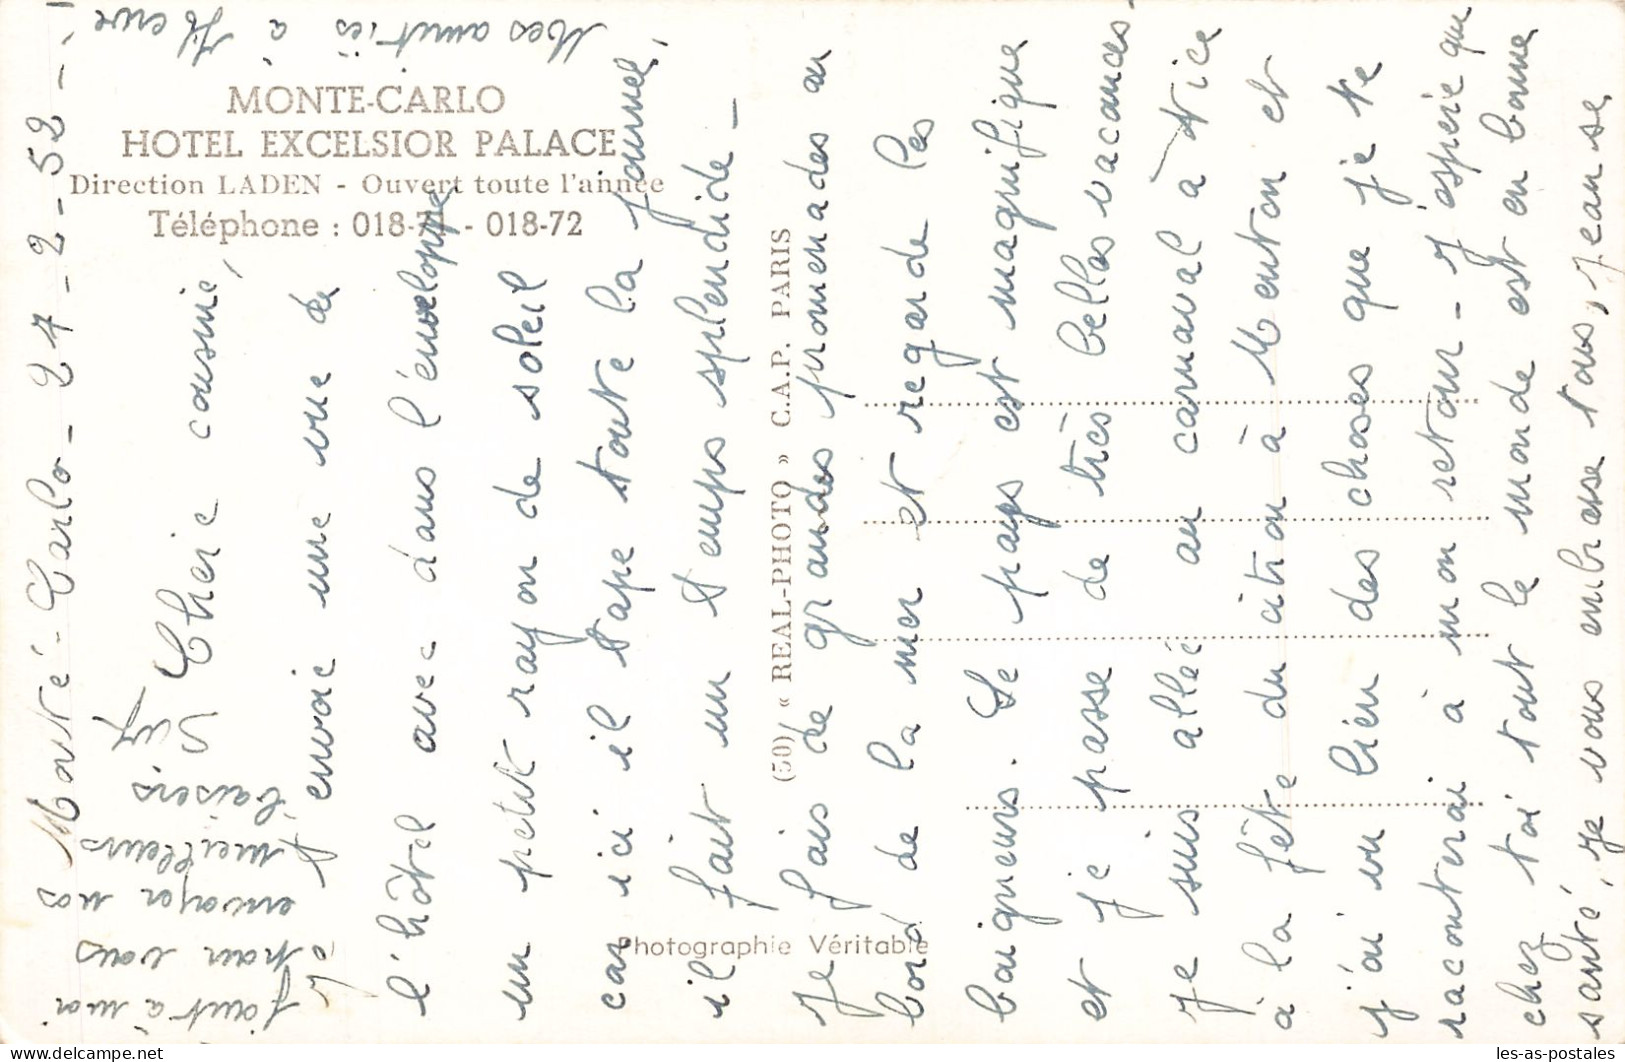 MONTE-CARLO
HOTEL EXCELSIOR PALACE
Direction LADEN - Ouvert toute l'année
Téléphone : 018-71 - 018-72
(50) « REAL-PHOTO » C.A.P. PARIS
Photographie Véritable
Monté-Carlo - 27-2-52 -
Chère cousine,
J'envoie une vue de
l'hôtel avec dans l'enveloppe
un petit rayon de soleil
car ici il tape toute la journée,
il fait un temps splendide -
Je fais de grandes promenades au
bord de la mer et regarde les
baigneurs. Le pays est magnifique
et je passe de très belles vacances.
Je suis allée au carnaval à Nice
à la fête du citron à Menton et
j'ai vu bien des choses que je te
raconterai à mon retour - J'espère que
chez toi tout le monde est en bonne
santé, je vous embrasse tous, Jeanse
Mes amitiés à Hervé
joint à moi
pour vous
envoyer nos
meilleurs
baisers
les-as-postales